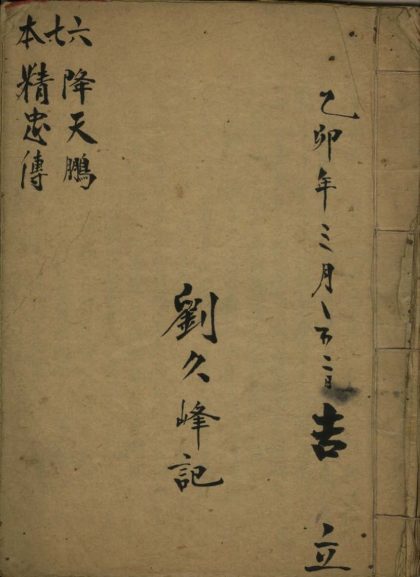 乙卯年三月二日吉立
劉久峰記
六七本
降天鵬
精忠傳